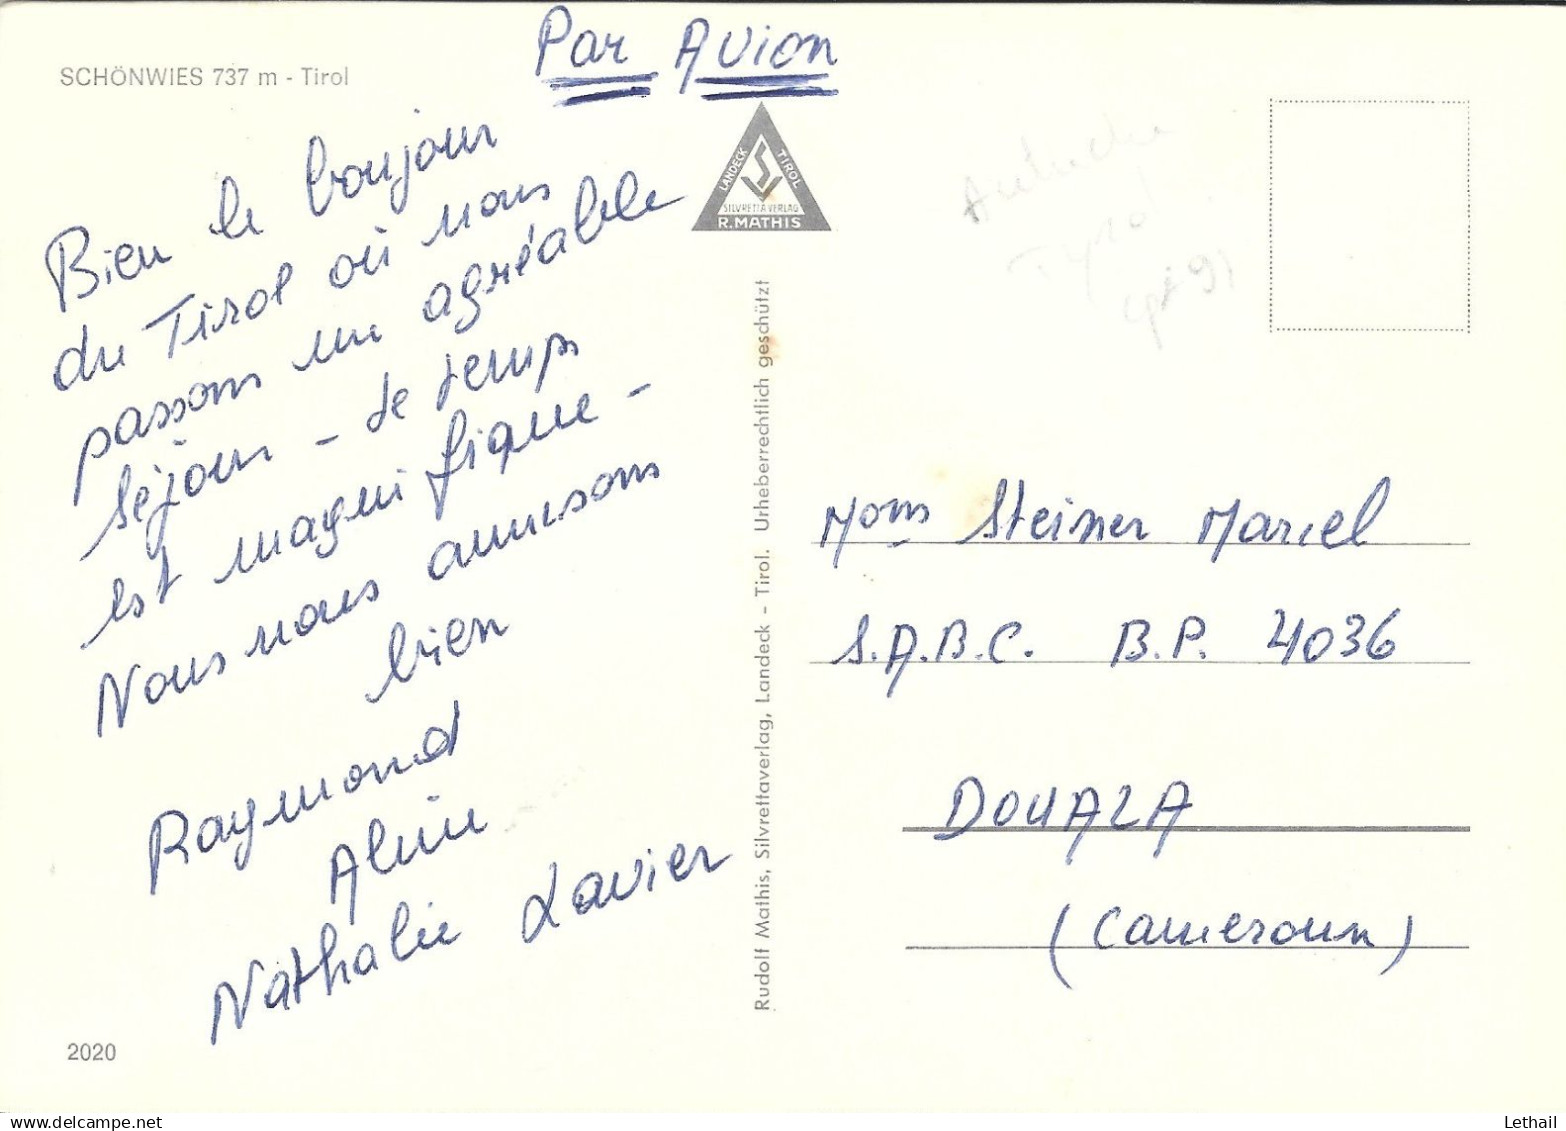 Par Avion
SCHÖNWIES 737 m - Tirol
Bien le bonjour
du Tirol où nous
passons un agréable
séjour - le temps
est magnifique -
Nous nous amusons
bien
Raymond
Aline
Nathalie Xavier
2020
LANDECK TIROL
SILVRETTAVERLAG
R. MATHIS
Rudolf Mathis, Silvrettaverlag, Landeck - Tirol. Urheberrechtlich geschützt
Mons Steiner Marcel
S.A.B.C. B.P. 4036
DOUALA
(Cameroun)
Lethail